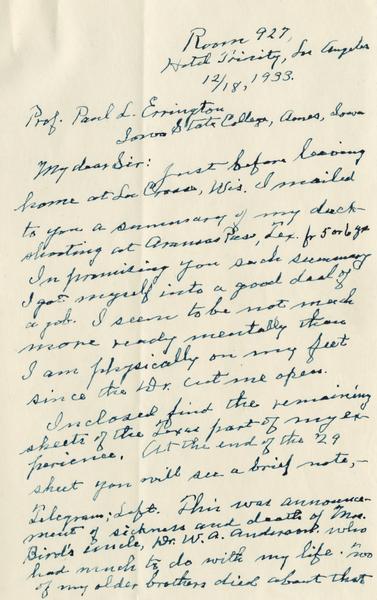 Room 927,
Hotel Trinity, Los Angeles
12/18, 1933.
Prof. Paul L. Errington
Iowa State College, Ames, Iowa
My dear Sir: Just before leaving
home at La Crosse, Wis. I mailed
to you a summary of my duck
shooting at Aransas Pass, Tex. fr 5 or 6 yrs
In promising you such summary
I got myself into a good deal of
a job. I seem to be not much
more ready mentally than
I am physically on my feet
since the Dr. cut me open.
Inclosed find the remaining
sheets of the Texas part of my ex
perience. At the end of the 29
sheet you will see a brief note,-
Telegram; Left. This was announce-
ment of sickness and death of Mrs.
Bird's Uncle, Dr. W. A. Anderson, who
had much to do with my life. Two
of my older brothers died about that